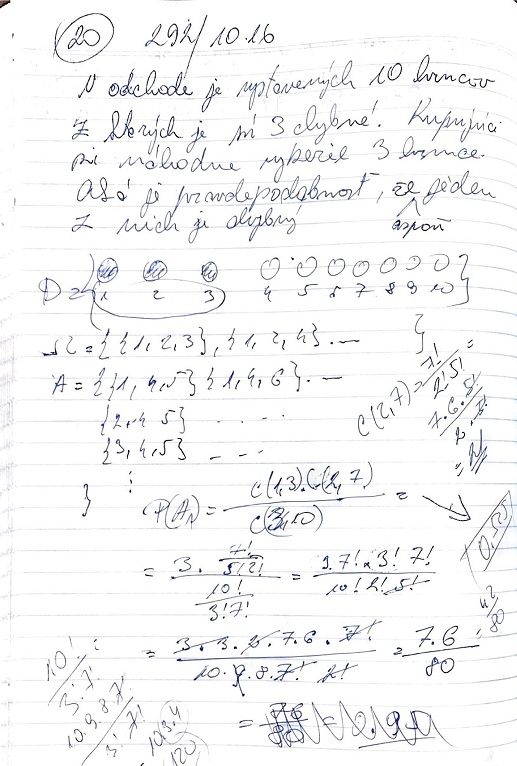 20 292/10.16
V odchode je vystavených 10 hrncov
Z ktorých je sú 3 chybné. Kupujúci
si náhodne vyberie 3 hrnce.
Aká je pravdepodobnosť, že jeden
z nich je chybný aspoň
D =
1 2 3 4 5 6 7 8 9 10
Ω = {{1, 2, 3}, {1, 2, 4} ... }
A = {{1, 4, 5} {1, 4, 6} ...
{2, 4 5} ....
{3, 4, 5} ...
}
C(2,7) = 7! / 2! 5! =
7.6.5! / 2.5!
= 21
P(A₁) = C(1,3).C(2,7) / C(3,10) =
0,525
= 3. 7!/5!2! / 10!/3!7! = 3.7!.3! 7! / 10! 2! 5!
= 3.3.2.7.6.7! / 10.9.8.7! 2! = 7.6 / 80 = 42/80
10! / 3! 7! =
10.9.8.7! / 3! 7!
10.3.4
120